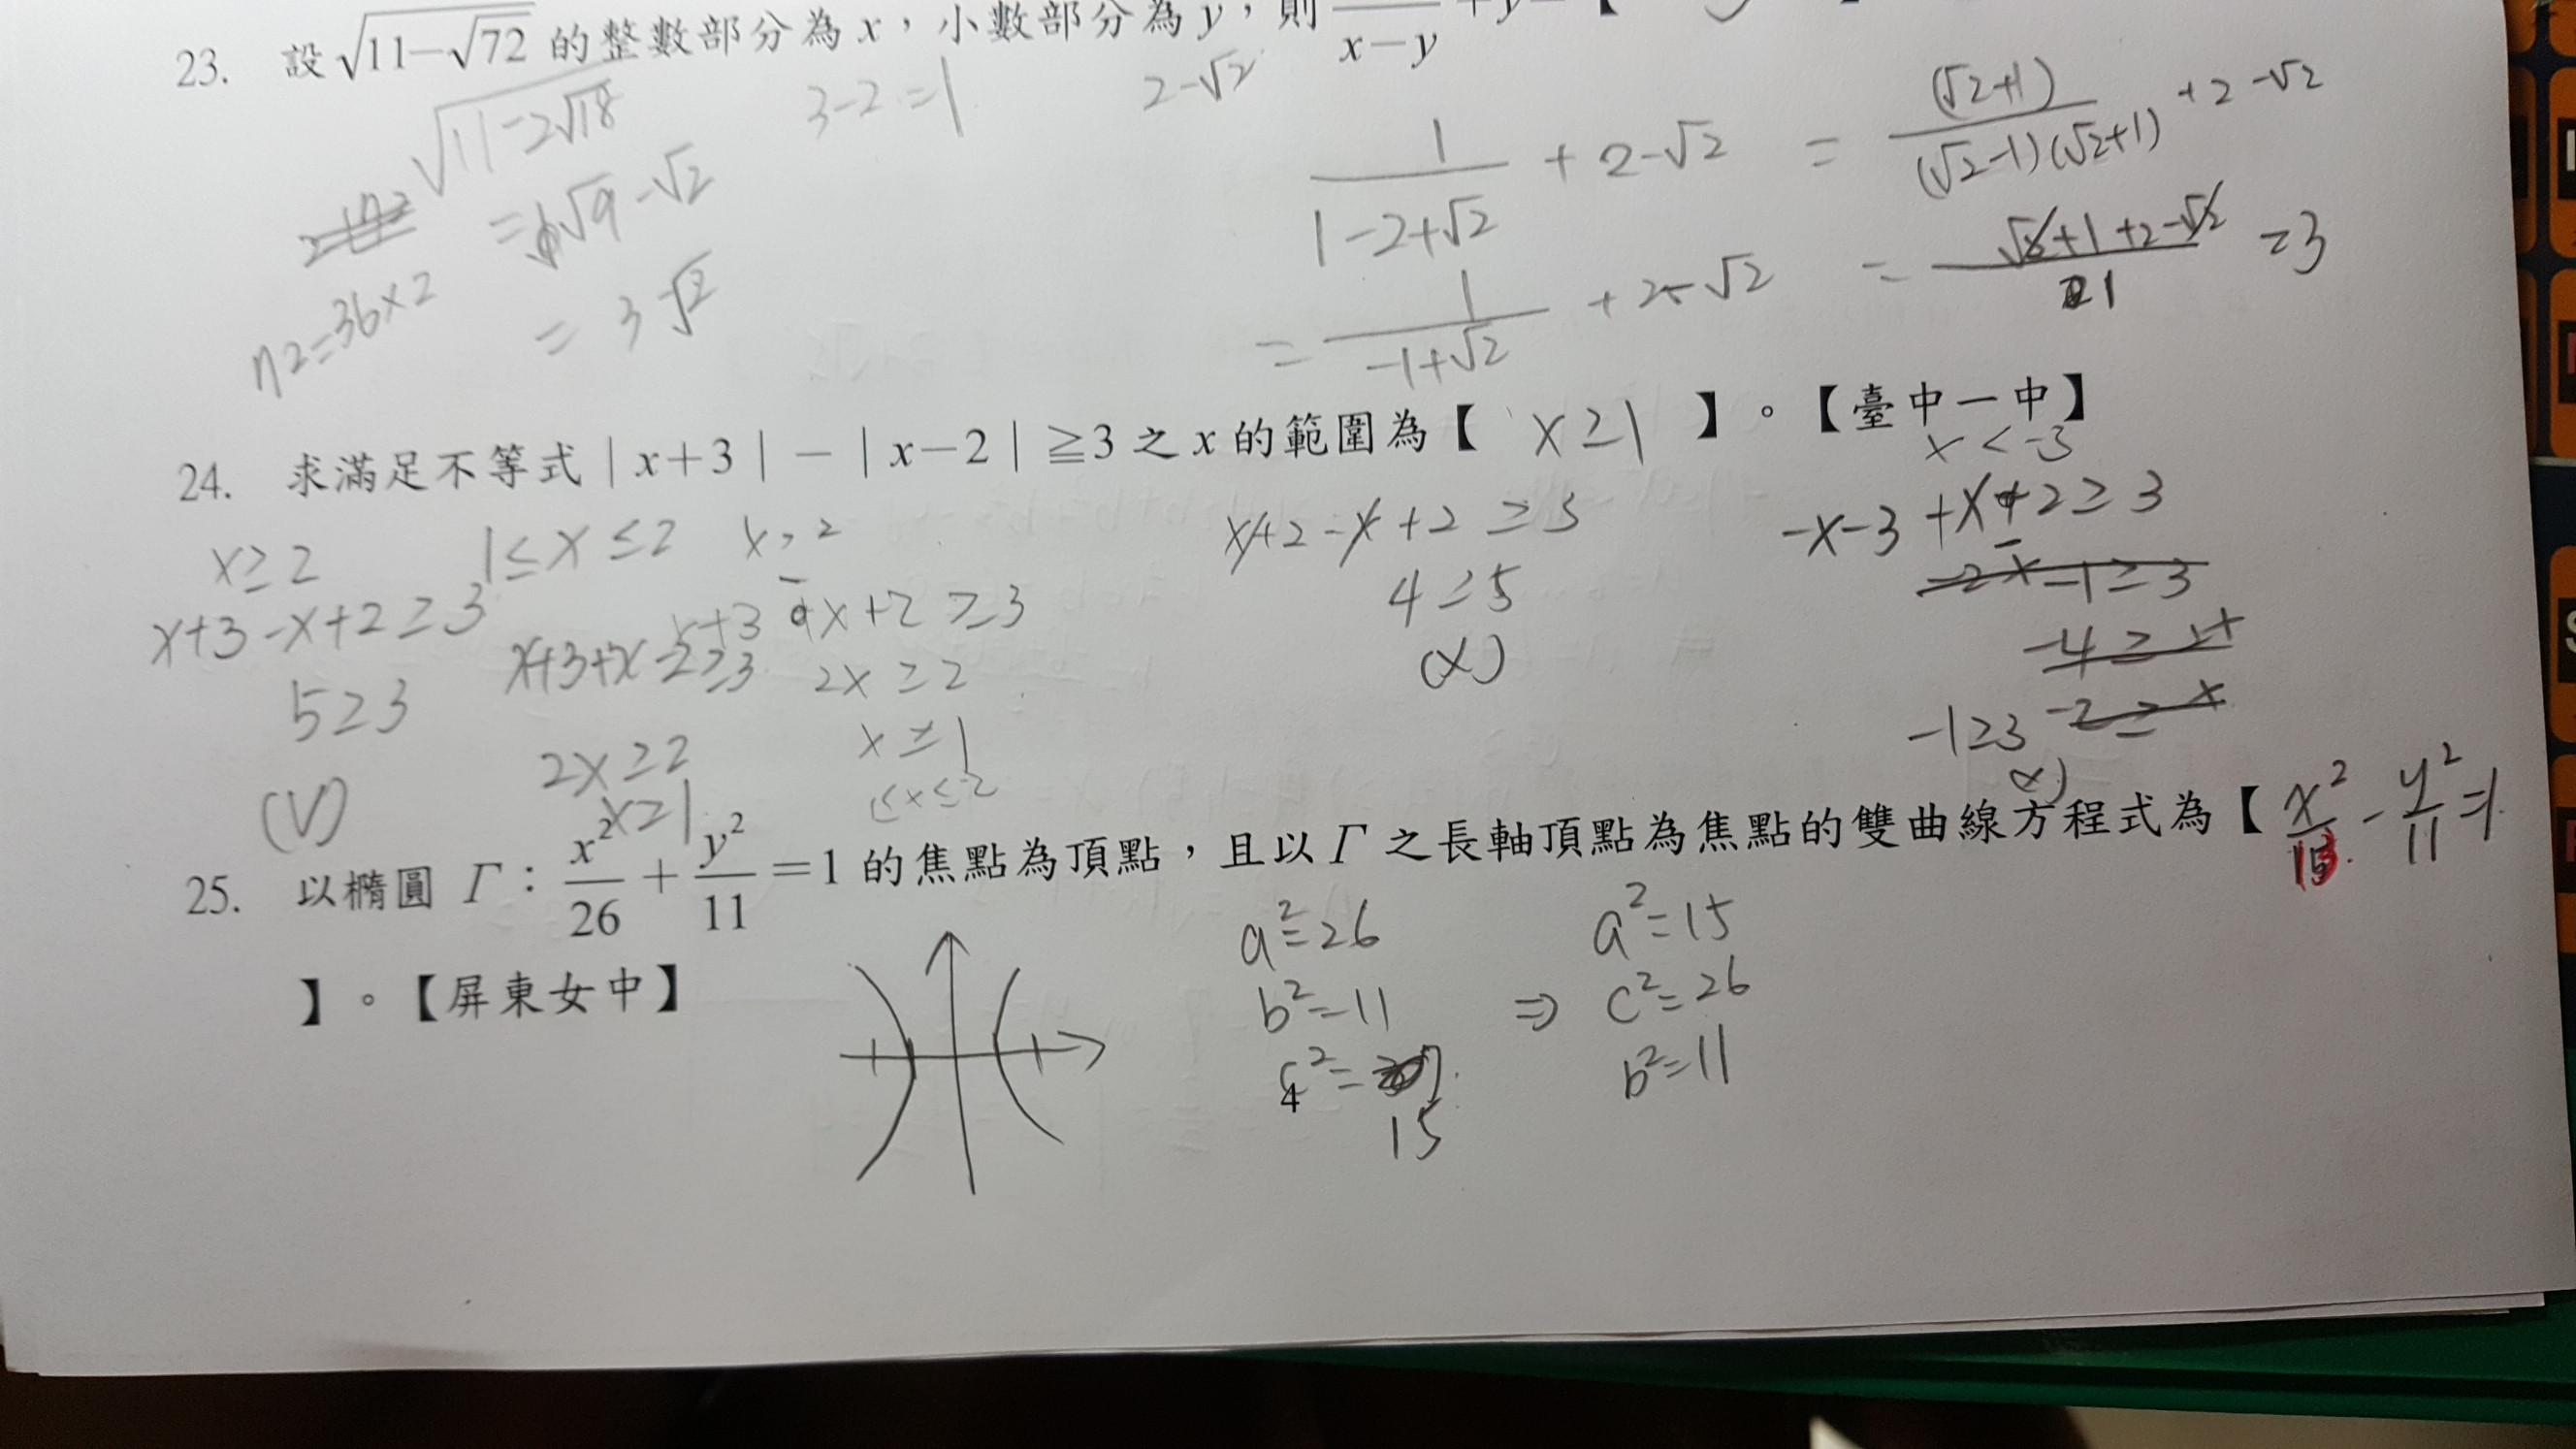 23. 設√11−√72 的整數部分為 x，小數部分為 y，則 x−y +y
√11−2√18
3−2=1
2−√2
1/(1−2+√2) + 2−√2 = (√2+1)/((√2−1)(√2+1)) +2−√2
=√9−√2
72=36×2
= 3−√2
= 1/(−1+√2) + 2−√2 = (√2+1+2−√2)/1 =3
24. 求滿足不等式 | x+3 | − | x−2 | ≧3 之 x 的範圍為【 x≥1 】。【臺中一中】
x≥2
x+3−x+2≥3
5≥3
(V)
1≤x≤2
x+3+x−2≥3
2x≥2
x≥1
x+3+x+2≥3
2x≥2
x≥1
1≤x≤2
x+2−x+2≥3
4≥5
(X)
x<−3
−x−3+x−2≥3
−2x−1≥3
−2≥x
−1≥3
(x)
25. 以橢圓 Γ：x²/26 + y²/11 =1 的焦點為頂點，且以 Γ 之長軸頂點為焦點的雙曲線方程式為【 x²/15 − y²/11 =1
】。【屏東女中】
a²=26
b²=11
c²=
15
⇒
a²=15
c²=26
b²=11
4